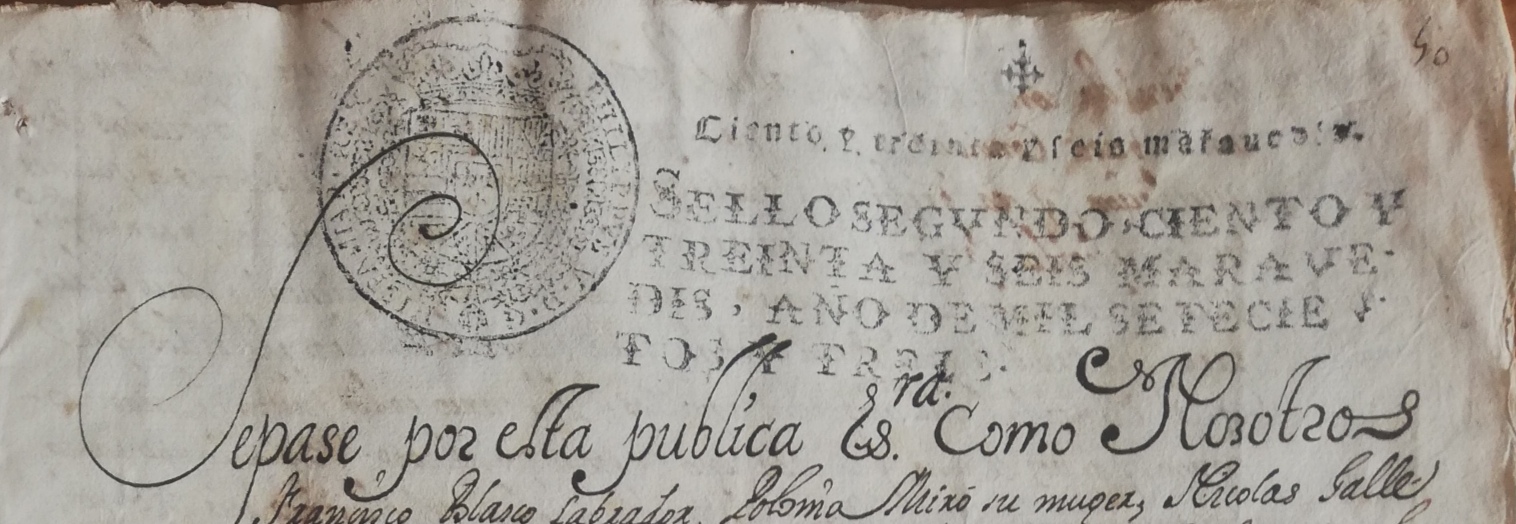 50
Ciento y treinta y seis marauedis.
SELLO SEGVNDO, CIENTO Y
TREINTA Y SEIS MARAVE-
DIS, AÑO DE MIL SETECIEN
TOS Y TREZE.
PHILIPPVS V. D. G.
Sepase por esta publica Es.ra Como Nosotros
Francisco Blasco labrador, Polonia Miró su muger, Nicolas Galle